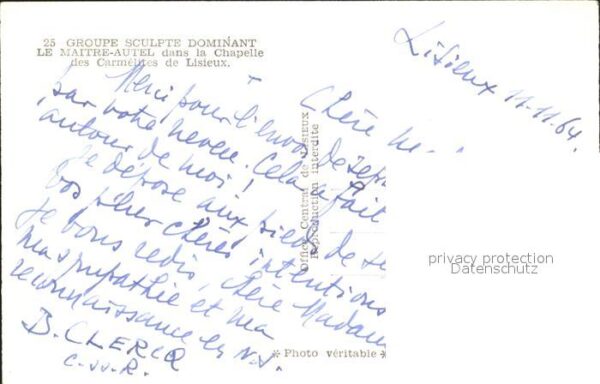 25 GROUPE SCULPTE DOMINANT
LE MAITRE-AUTEL dans la Chapelle
des Carmélites de Lisieux.
Lisieux 11.11.64.
Chère
Merci pour l'envoi de
par votre neveu. Cela a fait
autour de moi!
Je dépose aux pieds de
vos plus chères intentions
Je vous redis, chère Madame
ma sympathie et ma
reconnaissance en N.S.
B. CLERCQ
C.SS.R.
Office Central de LISIEUX
Reproduction interdite
* Photo véritable *
privacy protection
Datenschutz